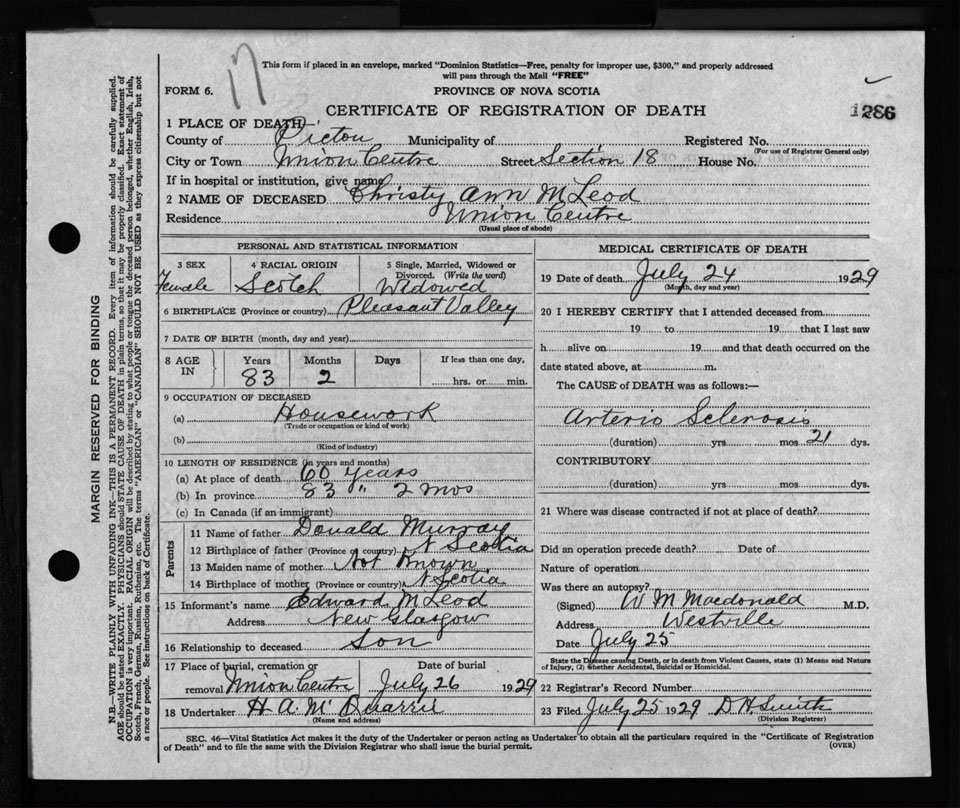 17
This form if placed in an envelope, marked "Dominion Statistics—Free, penalty for improper use, $300," and properly addressed
will pass through the Mail "FREE"
FORM 6.
PROVINCE OF NOVA SCOTIA
CERTIFICATE OF REGISTRATION OF DEATH
1286
1 PLACE OF DEATH—
County of Pictou Municipality of Registered No.
(For use of Registrar General only)
City or Town Union Centre Street Section 18 House No.
If in hospital or institution, give name
2 NAME OF DECEASED Christy Ann McLeod
Residence Union Centre
(Usual place of abode)
PERSONAL AND STATISTICAL INFORMATION
3 SEX
Female
4 RACIAL ORIGIN
Scotch
5 Single, Married, Widowed or
Divorced. (Write the word)
Widowed
6 BIRTHPLACE (Province or country) Pleasant Valley
7 DATE OF BIRTH (month, day and year)
8 AGE IN
Years
83
Months
2
Days
If less than one day,
hrs. or min.
9 OCCUPATION OF DECEASED
(a) Housework
(Trade or occupation or kind of work)
(b)
(Kind of industry)
10 LENGTH OF RESIDENCE (in years and months)
(a) At place of death 60 Years
(b) In province 83 " 2 mos
(c) In Canada (if an immigrant)
Parents
11 Name of father Donald Murray
12 Birthplace of father (Province or country) N Scotia
13 Maiden name of mother Not Known
14 Birthplace of mother (Province or country) N Scotia
15 Informant's name Edward McLeod
Address New Glasgow
16 Relationship to deceased Son
17 Place of burial, cremation or
removal Union Centre
Date of burial
July 26 1929
18 Undertaker H A. McQuarrie
(Name and address)
MEDICAL CERTIFICATE OF DEATH
19 Date of death July 24 1929
(Month, day and year)
20 I HEREBY CERTIFY that I attended deceased from
19 to 19 that I last saw
h alive on 19 and that death occurred on the
date stated above, at m.
The CAUSE of DEATH was as follows:—
Arterio Sclerosis
(duration) yrs mos 21 dys.
CONTRIBUTORY
(duration) yrs mos dys.
21 Where was disease contracted if not at place of death?
Did an operation precede death? Date of
Nature of operation
Was there an autopsy?
(Signed) W M Macdonald M.D.
Address Westville
Date July 25
State the Disease causing Death, or in death from Violent Causes, state (1) Means and Nature
of Injury, (2) whether Accidental, Suicidal or Homicidal.
22 Registrar's Record Number
23 Filed July 25 1929 D H Smith
(Division Registrar)
SEC. 46—Vital Statistics Act makes it the duty of the Undertaker or person acting as Undertaker to obtain all the particulars required in the "Certificate of Registration
of Death" and to file the same with the Division Registrar who shall issue the burial permit.
(OVER)
MARGIN RESERVED FOR BINDING
N.B.—WRITE PLAINLY WITH UNFADING INK—THIS IS A PERMANENT RECORD. Every item of information should be carefully supplied.
AGE should be stated EXACTLY. PHYSICIANS should STATE CAUSE OF DEATH in plain terms, so that it may be properly classified. Exact statement of
OCCUPATION is very important. RACIAL ORIGIN will be described by stating to what people or tongue the deceased person belonged, whether English, Irish,
Scotch, French, German, Russian, Ruthenian, etc. The terms "AMERICAN" or "CANADIAN" SHOULD NOT BE USED as they express citizenship but not
a race or people. See instructions on back of Certificate.